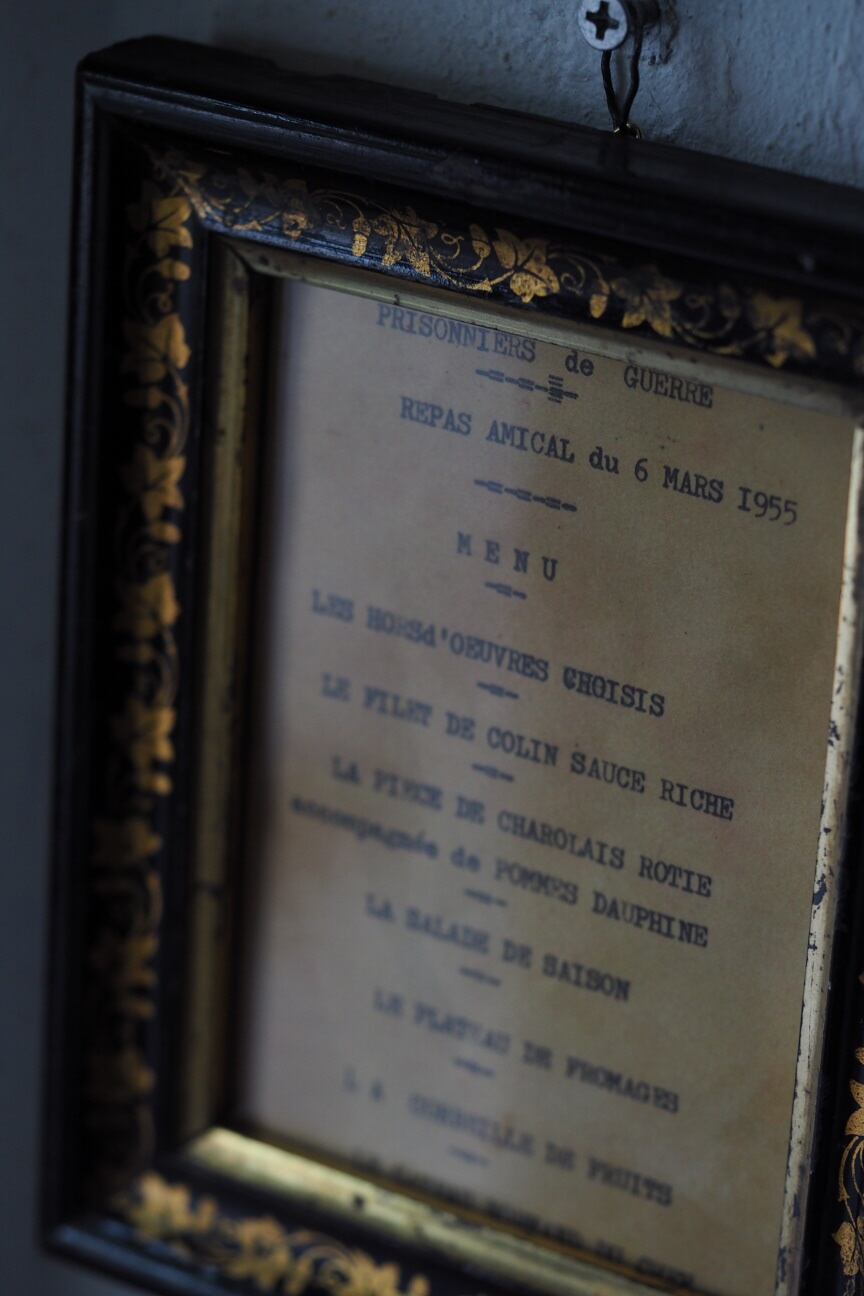 PRISONNIERS de GUERRE
REPAS AMICAL du 6 MARS I955
MENU
LES HORSd'OEUVRES CHOISIS
LE FILET DE COLIN SAUCE RICHE
LA PIECE DE CHAROLAIS ROTIE
accompagnée de POMMES DAUPHINE
LA SALADE DE SAISON
LE PLATEAU DE FROMAGES
CORBEILLE DE FRUITS